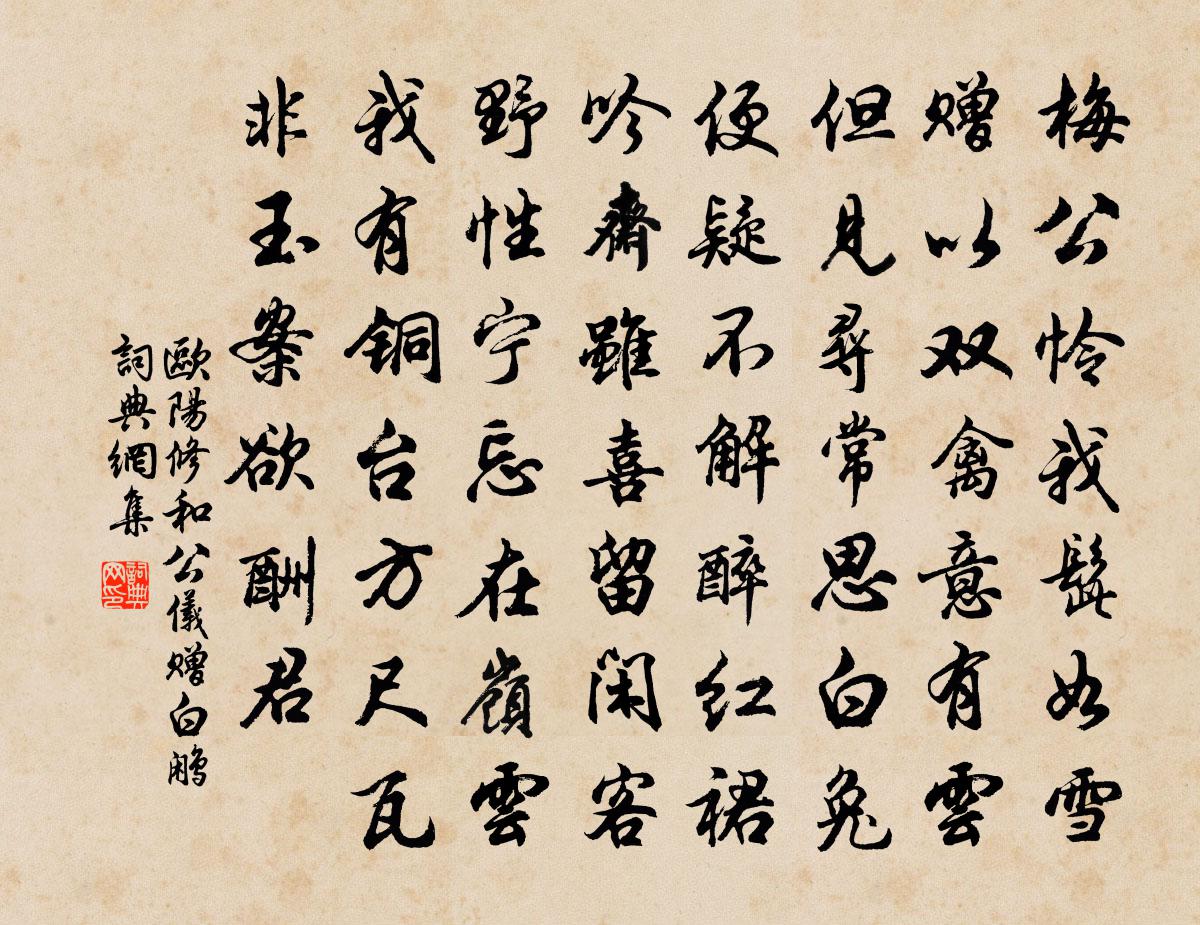 梅公怜我髭如雪
赠以双禽意有雲
但见尋常思白兔
便疑不解醉红裙
吟齋雖喜留閑客
野性宁忘在嶺雲
我有铜台方尺瓦
非玉案欲酬君
歐陽修和公儀赠白鹇
詞典網集
詞典网印